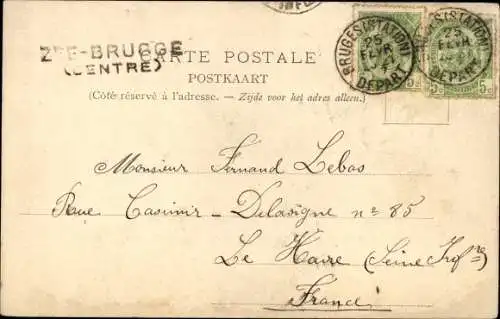 ZEE-BRUGGE
(CENTRE)
CARTE POSTALE
POSTKAART
(Côté réservé à l'adresse. — Zijde voor het adres alleen.)
BRUGES (STATION)
25
FEVR
DEPART
5c
(STATION)
25
FEVR
DEPART
5c 5c
Monsieur Fernand Lebas
Rue Casimir-Delavigne nº 85
Le Havre (Seine Infre)
France